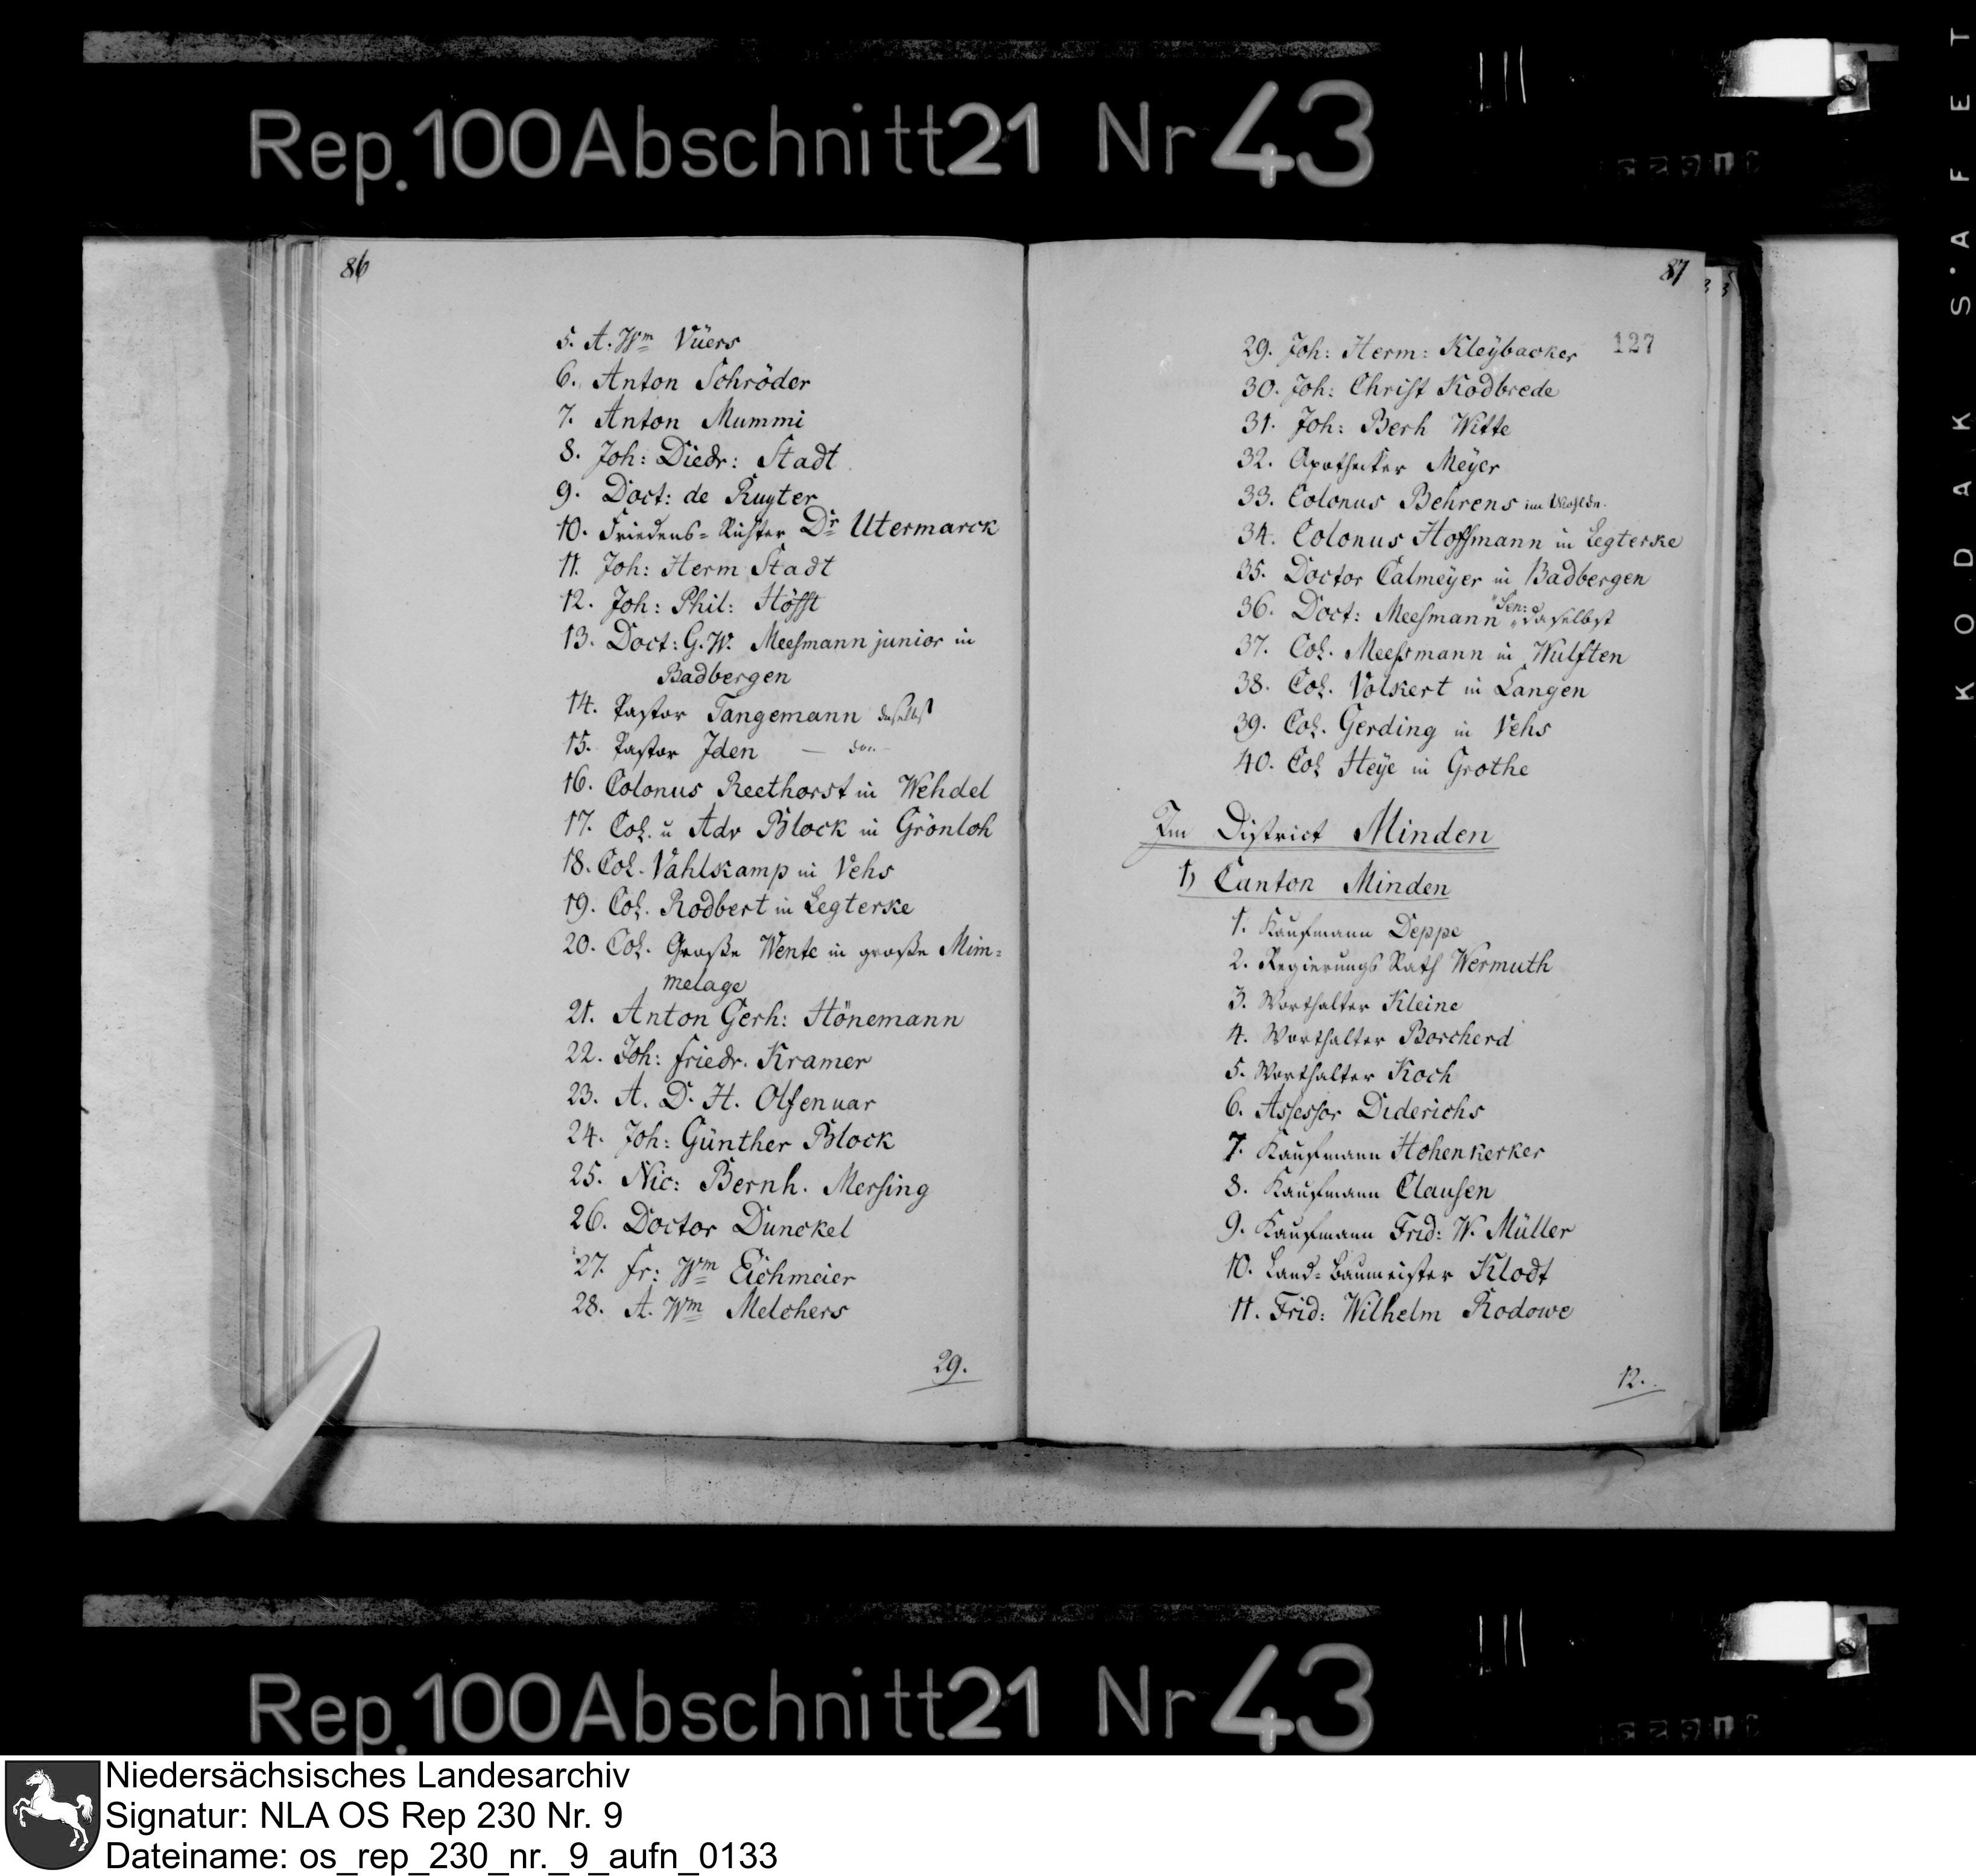 Rep. 100 Abschnitt 21 Nr 43
KODAK S'AFET
86
5. A. Wm Vüers
6. Anton Schröder
7. Anton Mummi
8. Joh: Diedr: Stadt
9. Doct: de Ruyter
10. Friedens-Richter Dr Utermarck
11. Joh: Herm Stadt
12. Joh: Phil: Höfft
13. Doct: G. W. Meesmann junior in
Badbergen
14. Pastor Tangemann daselbst
15. Pastor Iden — do. —
16. Colonus Reethorst in Wehdel
17. Col. u Adv Block in Grönloh
18. Col. Vahlkamp in Vehs
19. Col. Rodbert in Legterke
20. Col. Große Wente in große Mim-
melage
21. Anton Gerh: Hönemann
22. Joh: Friedr. Kramer
23. A. D. H. Olfenuar
24. Joh: Günther Block
25. Nic: Bernh. Mersing
26. Doctor Dunckel
27. Fr: Wm Eichmeier
28. A. Wm Melchers
29.
87
127
29. Joh: Herm: Kleÿbacker
30. Joh: Christ Kodbrede
31. Joh: Berh Witte
32. Apotheker Meÿer
33. Colonus Behrens im
34. Colonus Hoffmann in Legterke
35. Doctor Calmeÿer in Badbergen
36. Doct: Meesmann Sen: daselbst
37. Col. Meessmann in Wulften
38. Col. Volkert in Langen
39. Col. Gerding in Vehs
40. Col Heÿe in Grothe
Im District Minden
1, Canton Minden
1. Kaufmann Deppe
2. Regierungs Rath Wermuth
3. Worthalter Kleine
4. Worthalter Borcherd
5. Worthalter Koch
6. Assessor Diderichs
7. Kaufmann Hohenkerker
8. Kaufmann Clausen
9. Kaufmann Frid: W. Müller
10. Land-Baumeister Klodt
11. Frid: Wilhelm Rodowe
12.
Rep. 100 Abschnitt 21 Nr 43
Niedersächsisches Landesarchiv
Signatur: NLA OS Rep 230 Nr. 9
Dateiname: os_rep_230_nr._9_aufn_0133